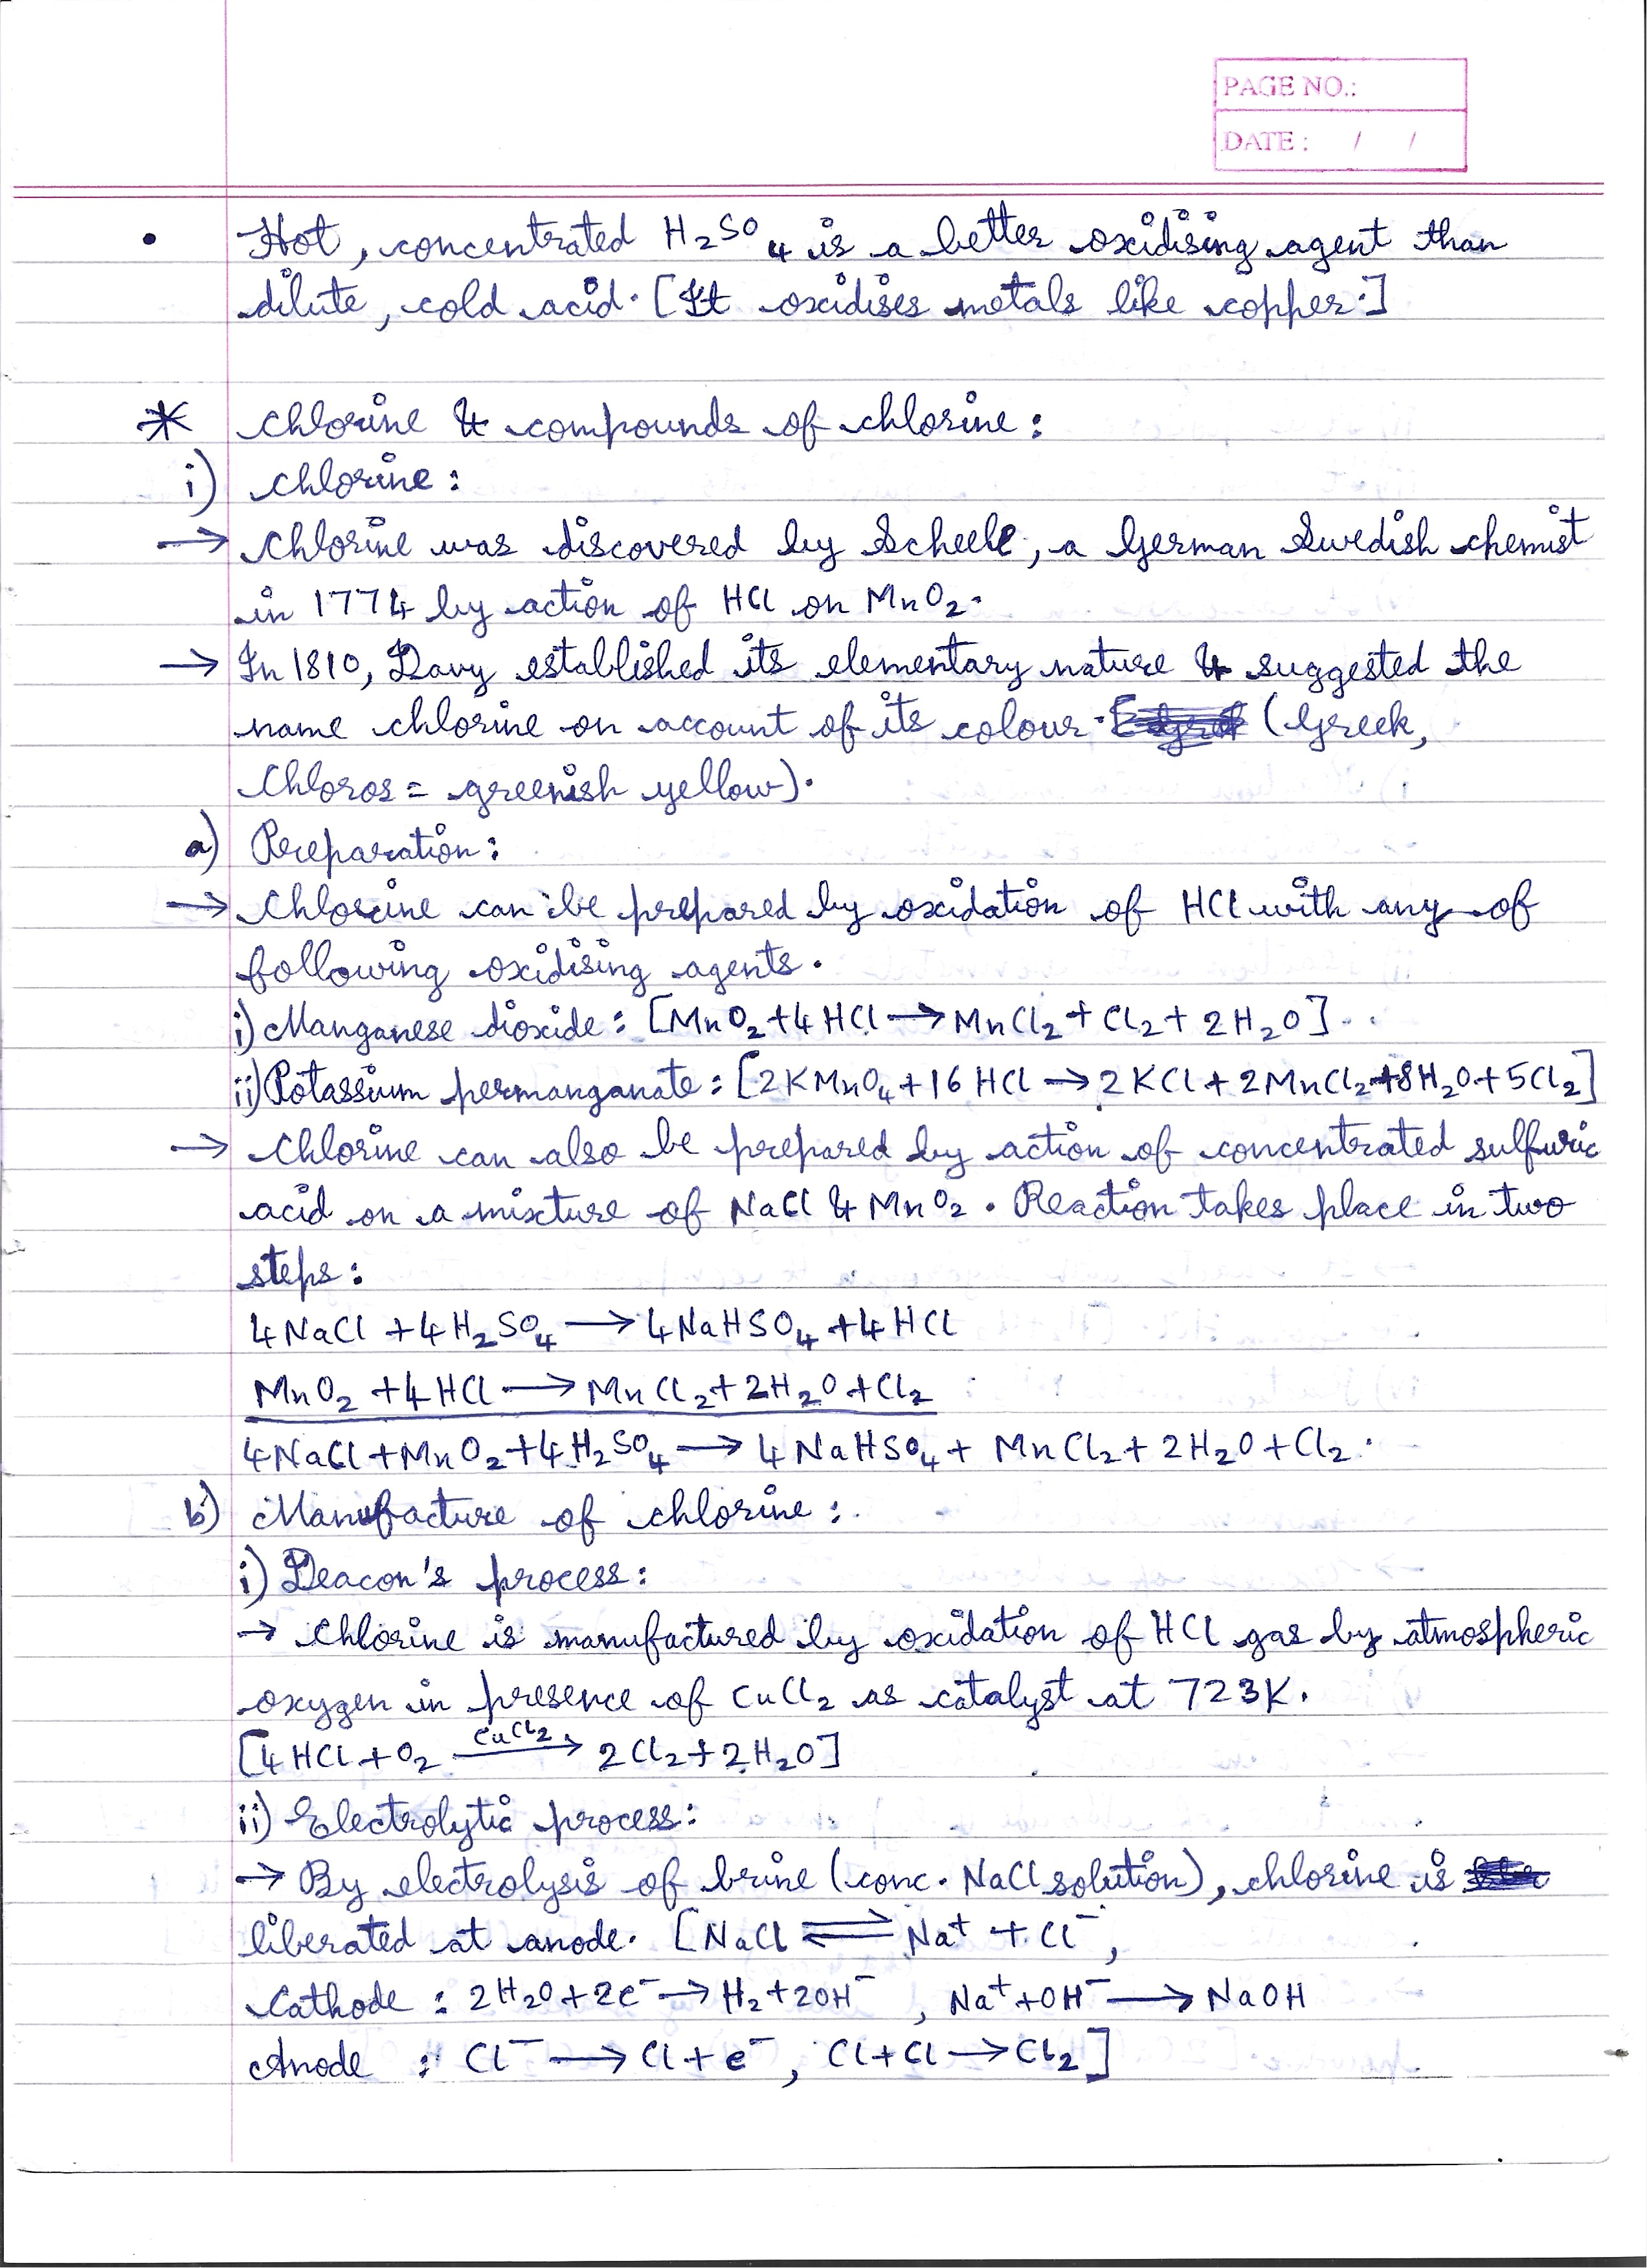 PAGE NO.:
DATE : / /
• Hot, concentrated H₂SO₄ is a better oxidising agent than
dilute, cold acid. [It oxidises metals like copper.]
* Chlorine & compounds of chlorine :
i) Chlorine :
→ Chlorine was discovered by Scheele, a German Swedish chemist
in 1774 by action of HCl on MnO₂.
→ In 1810, Davy established its elementary nature & suggested the
name chlorine on account of its colour. (Greek,
Chloros = greenish yellow).
a) Preparation :
→ Chlorine can be prepared by oxidation of HCl with any of
following oxidising agents.
i) Manganese dioxide : [MnO₂ + 4 HCl → MnCl₂ + Cl₂ + 2H₂O].
ii) Potassium permanganate : [2KMnO₄ + 16 HCl → 2 KCl + 2MnCl₂ + 8H₂O + 5Cl₂]
→ Chlorine can also be prepared by action of concentrated sulfuric
acid on a mixture of NaCl & MnO₂. Reaction takes place in two
steps :
4NaCl + 4H₂SO₄ → 4NaHSO₄ + 4HCl
MnO₂ + 4HCl → MnCl₂ + 2H₂O + Cl₂
4NaCl + MnO₂ + 4H₂SO₄ → 4NaHSO₄ + MnCl₂ + 2H₂O + Cl₂.
b) Manufacture of chlorine :
i) Deacon's process :
→ Chlorine is manufactured by oxidation of HCl gas by atmospheric
oxygen in presence of CuCl₂ as catalyst at 723K.
CuCl₂
[4HCl + O₂ → 2Cl₂ + 2H₂O]
ii) Electrolytic process :
→ By electrolysis of brine (conc. NaCl solution), chlorine is
liberated at anode. [NaCl ⇌ Na⁺ + Cl⁻,
Cathode : 2H₂O + 2e⁻ → H₂ + 2OH⁻ , Na⁺ + OH⁻ → NaOH
Anode : Cl⁻ → Cl + e⁻ , Cl + Cl → Cl₂]